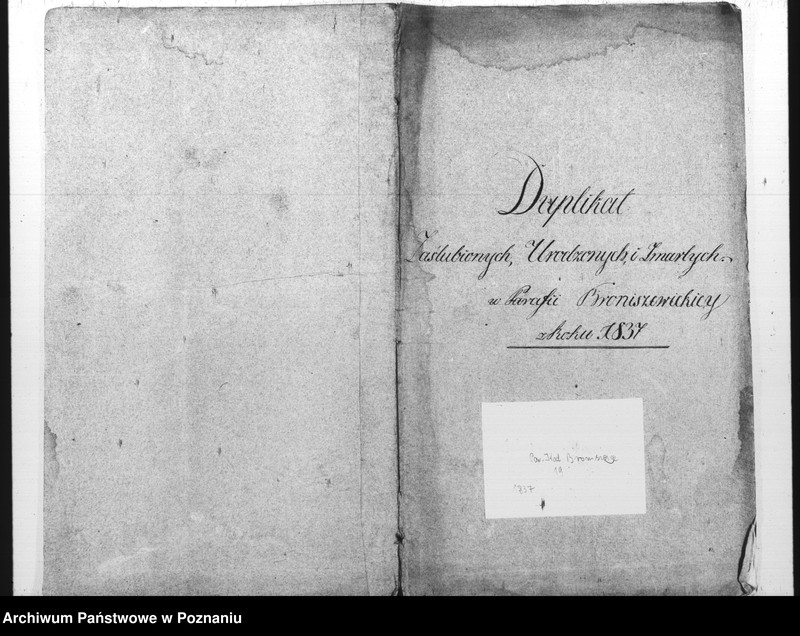 Duplikat
Zaślubionych, Urodzonych, i Zmarłych
w Parafii Broniszewickiey
z Roku 1837
Par. Kat
1837
Archiwum Państwowe w Poznaniu